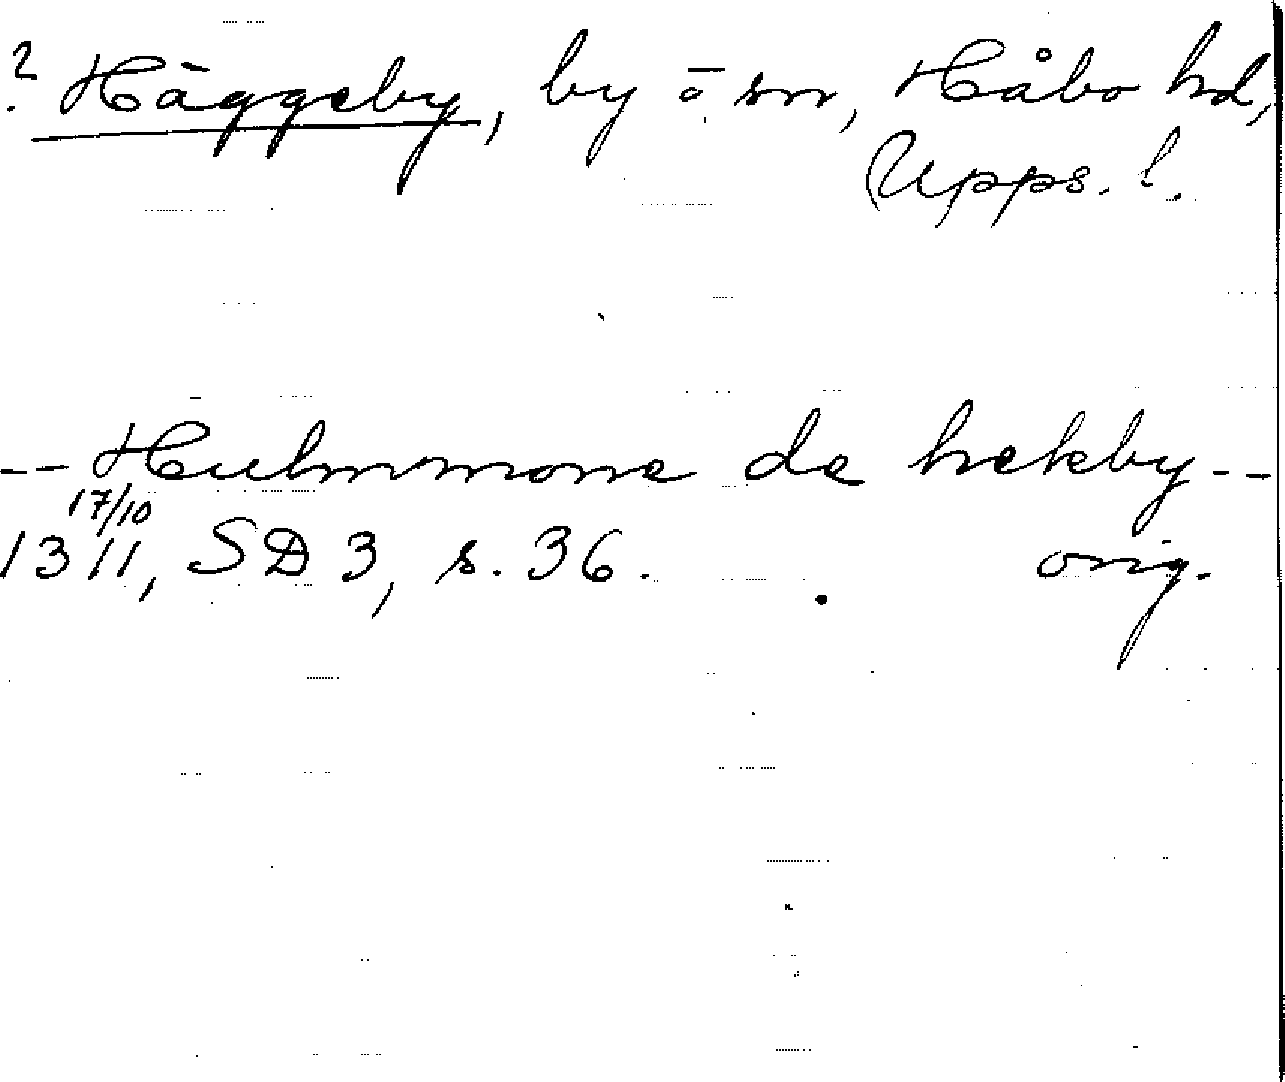 ? Häggeby, by o sn, Håbo hd,
Upps. l.
-- Hulmmone de hekby --
17/10
1311, SD 3, s. 36. orig.